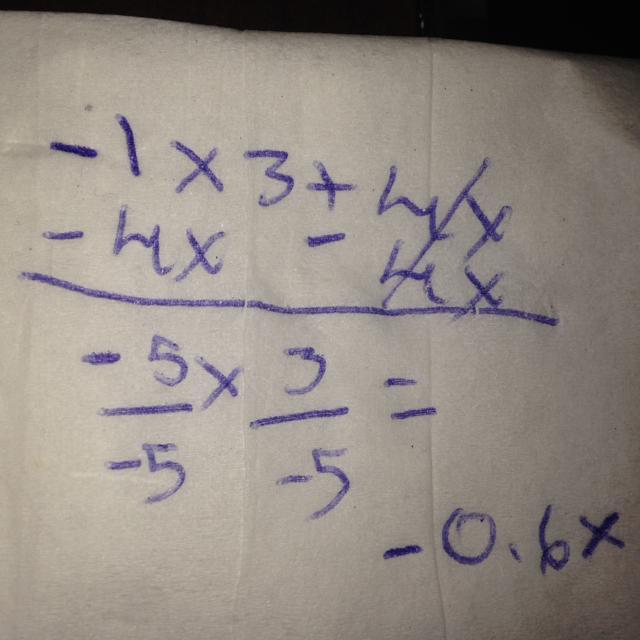 -1x 3+4x
-4x - 4x
-5x 3 =
-5 -5
-0.6x